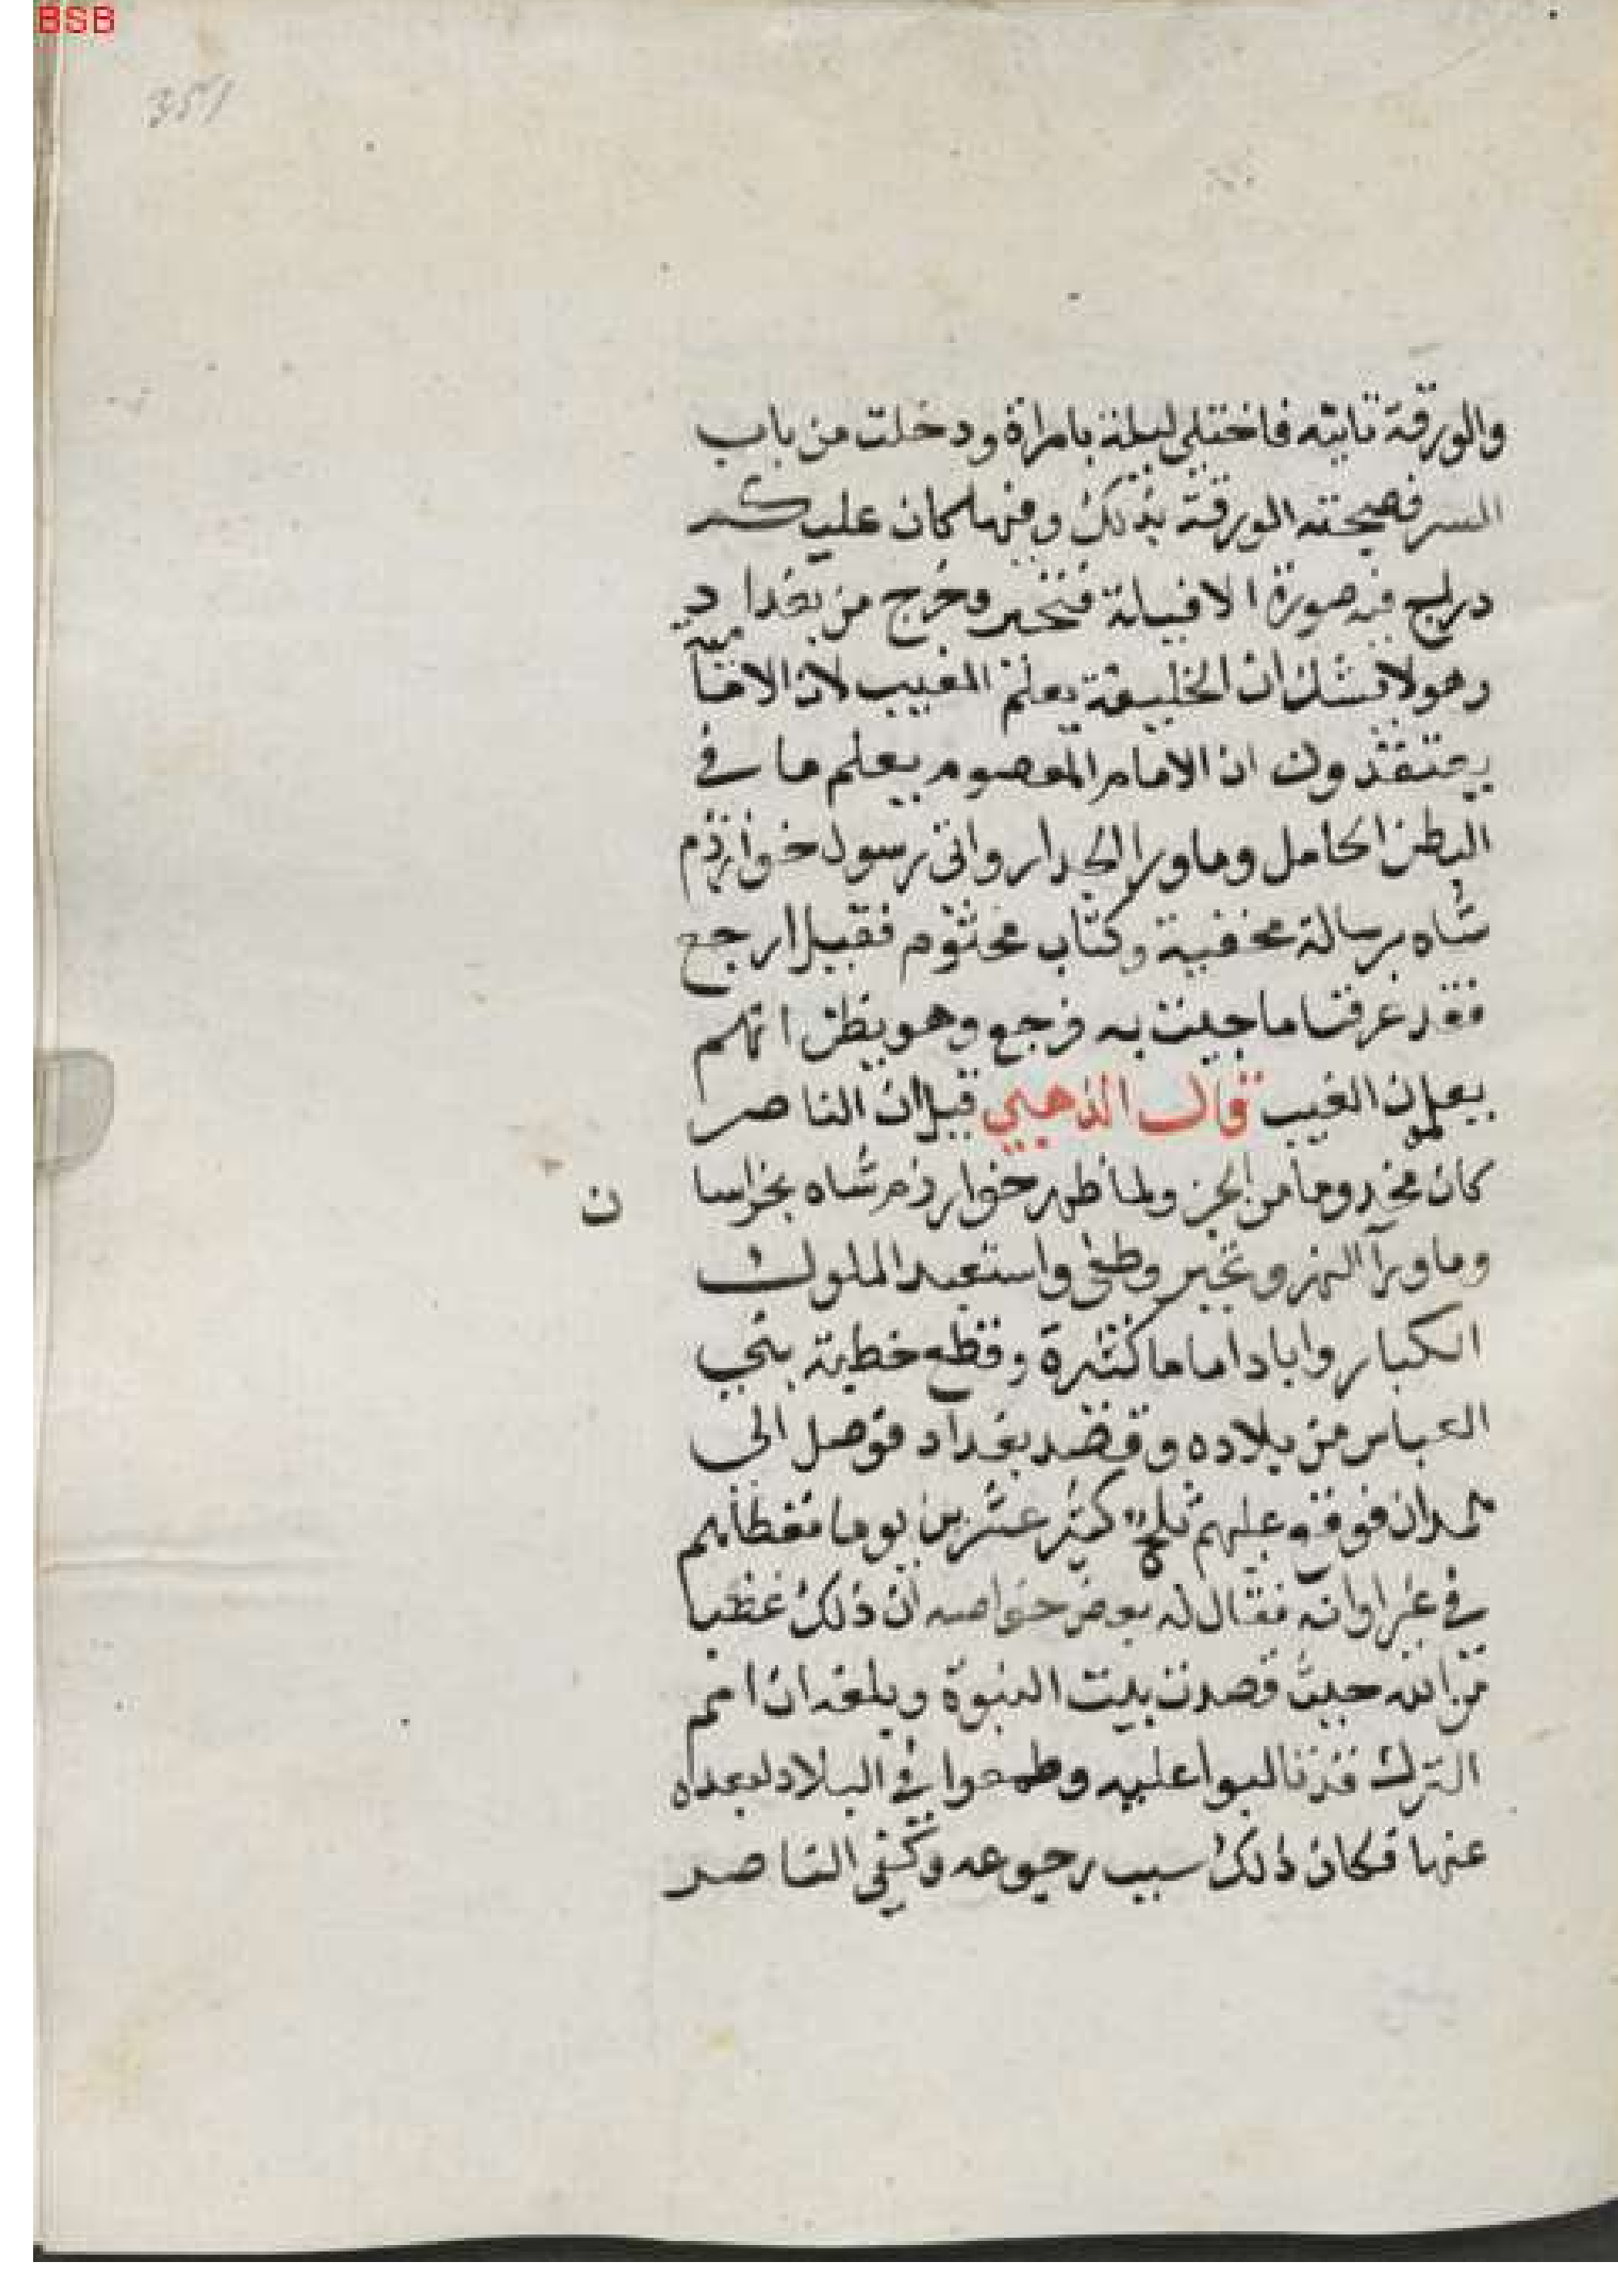 BSB
351
والورقة تاتيه فاختلي ليلة بامراة ودخلت من باب
السر فصبحته الورقة بذلك وفيها كان عليكم
دراج فيه صورة الافيلة فتحير وخرج من بغداد
وهو لا يشك ان الخليفة يعلم الغيب لان الامامية
يعتقدون ان الامام المعصوم يعلم ما في
البطن الحامل وما ورا الجدار واتى رسول خوارزم
شاه برسالة مخفية وكتاب مختوم فقيل ارجع
فقد عرفنا ما جيت به فرجع وهو يظن انهم
يعلمون الغيب قال الذهبي قيل ان الناصر
كان مخدوما من الجن ولما ظهر خوارزم شاه بخراسا
ن
وما ورآ النهر وتجبر وطغى واستعبد الملوك
الكبار واباد امما كثيرة وقطع خطبة بني
العباس من بلاده وقصد بغداد فوصل الى
همدان فوقع عليهم ثلج كثير عشرين يوما فغطاهم
في غير اوانه فقال له بعض خواصه ان ذلك غضبا
من الله حيث قصدت بيت النبوة وبلغه ان امم
الترك قد تالبوا عليه وطمعوا في البلاد لبعده
عنها فكان ذلك سبب رجوعه وكفي الناصر